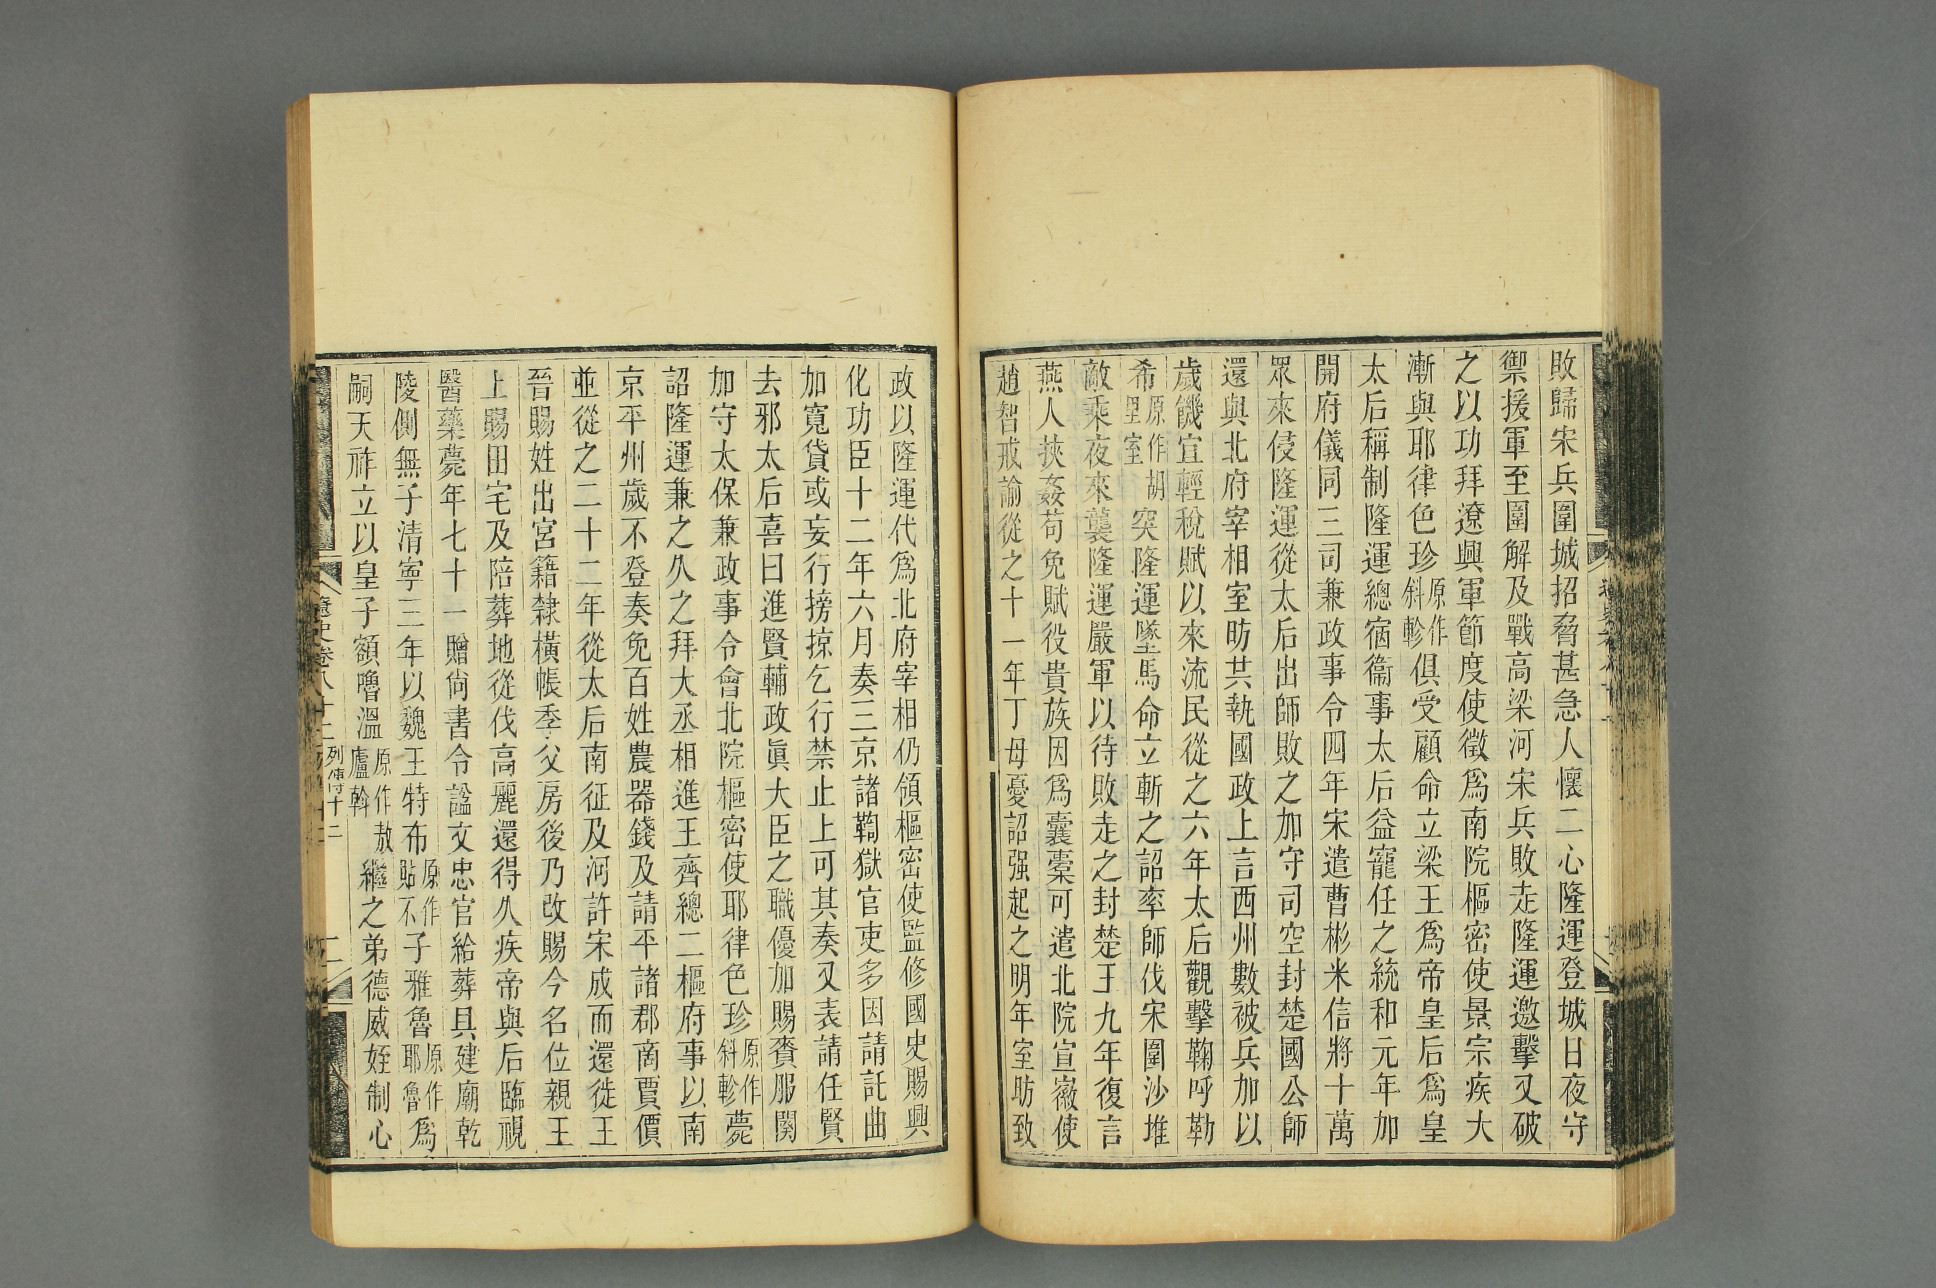 敗歸宋兵圍城招脅甚急人懷二心隆運登城日夜守
禦援軍至圍解及戰高梁河宋兵敗走隆運邀擊又破
之以功拜遼興軍節度使徵爲南院樞密使景宗疾大
漸與耶律色珍原作斜軫俱受顧命立梁王爲帝皇后爲皇
太后稱制隆運總宿衞事太后益寵任之統和元年加
開府儀同三司兼政事令四年宋遣曹彬米信將十萬
眾來侵隆運從太后出師敗之加守司空封楚國公師
還與北府宰相室昉共執國政上言西州數被兵加以
歲饑宜輕稅賦以來流民從之六年太后觀擊鞠呼勒
希原作胡里室突隆運墜馬命立斬之詔率師伐宋圍沙堆
敵乘夜來襲隆運嚴軍以待敗走之封楚王九年復言
燕人挾姦苟免賦役貴族因爲囊橐可遣北院宣徽使
趙智戒諭從之十一年丁母憂詔强起之明年室昉致
政以隆運代爲北府宰相仍領樞密使監修國史賜興
化功臣十二年六月奏三京諸鞫獄官吏多因請託曲
加寬貸或妄行搒掠乞行禁止上可其奏又表請任賢
去邪太后喜曰進賢輔政眞大臣之職優加賜賚服闋
加守太保兼政事令會北院樞密使耶律色珍原作斜軫薨
詔隆運兼之久之拜大丞相進王齊總二樞府事以南
京平州歲不登奏免百姓農器錢及請平諸郡商賈價
並從之二十二年從太后南征及河許宋成而還徙王
晉賜姓出宮籍隸橫帳季父房後乃改賜今名位親王
上賜田宅及陪葬地從伐高麗還得久疾帝與后臨視
醫藥薨年七十一贈尙書令諡文忠官給葬具建廟乾
陵側無子清寧三年以魏王特布原作貼不子雅魯原作耶魯爲
嗣天祚立以皇子額嚕溫原作敖盧斡繼之弟德威姪制心
遼史卷八十二 列傳十二 二